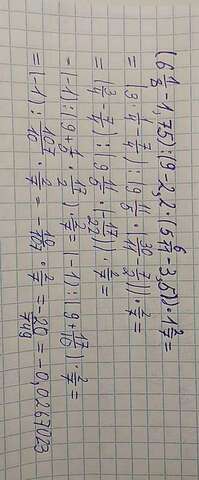 (6 1/8 - 1,75) : (9 - 2,2 · (5 6/11 - 3,5)) · 1 2/7 =
= (9 · 1/4 - 7/4) : (9 11/5 · (30/11 - 7/2)) · 2/7 =
= (3/4 - 7/4) : (9 11/5 · (-17/22)) · 2/7 =
= (-1) : (9 + 1/5 · 17/2) · 2/7 = (-1) : (9 + 17/10) · 2/7 =
= (-1) : 107/10 · 2/7 = - 10/107 · 2/7 = - 20/749 = -0,0267023